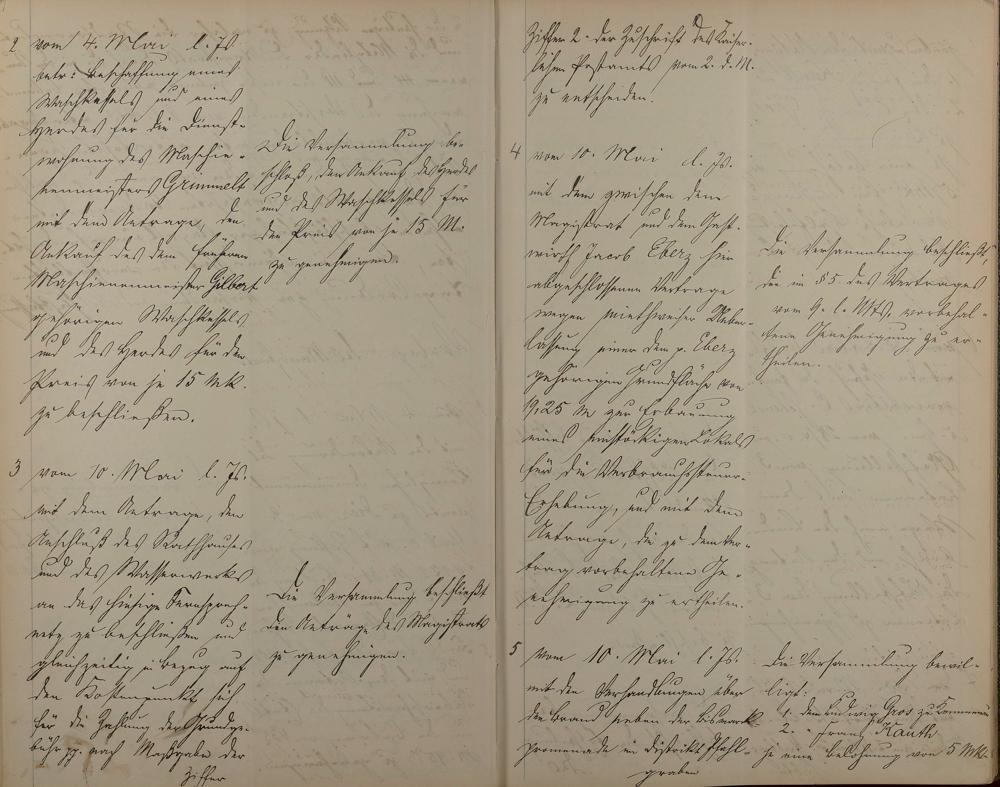 2 vom 4. Mai l. Js.
betr: Beschaffung eines
Waschkessels und eines
Herdes für die Dienst-
wohnung des Maschie-
nenmeisters Grimmelt
mit dem Antrage, den
Ankauf des dem früheren
Maschienenmeister Gilbert
gehörigen Waschkessels
und des Herdes für den
Preis von je 15 Mk.
zu beschließen.
Die Versammlung be-
schloß, den Ankauf des Herdes
und des Waschkessels für
den Preis von je 15 M.
zu genehmigen.
3 vom 10. Mai l. Js.
mit dem Antrage, den
Anschluß des Rathhauses
und des Wasserwerks
an das hiesige Fernsprech-
netz zu beschließen und
gleichzeitig in Bezug auf
den Kostenpunkt sich
für die Zahlung der Grundge-
bühr pp. nach Maßgabe der
Ziffer
Die Versammlung beschließt
den Anträge des Magistrats
zu genehmigen.
Ziffer 2 der Zuschrift des Kaiser-
lichen Postamts vom 2. d. M.
zu entscheiden.
4 vom 10. Mai l. Js.
mit dem zwischen dem
Magistrat und dem Gast-
wirth Jacob Eberz hier
abgeschlossenen Vertrage
wegen miethweiser Ueber-
lassung einer dem p. Eberz
gehörigen Grundfläche von
19,25 m zur Erbauung
eines einstöckigen Lokals
für die Verbrauchssteuer-
Erhebung, und mit dem
Antrage, die zu dem Ver-
trag vorbehaltene Ge-
nehmigung zu ertheilen.
Die Versammlung beschließt
die im § 5 des Vertrages
vom 9. l. Mts. vorbehal-
tene Genehmigung zu er-
theilen.
5 vom 10. Mai l. Js.
mit den Verhandlungen über
den Brand neben der Bismarck-
promenade im Distrikt Pfahl-
graben
Die Versammlung bewil-
ligt:
1. dem Ludwig Gros zu
2. " Franz Kauth
je eine Belohnung von 5 Mk.